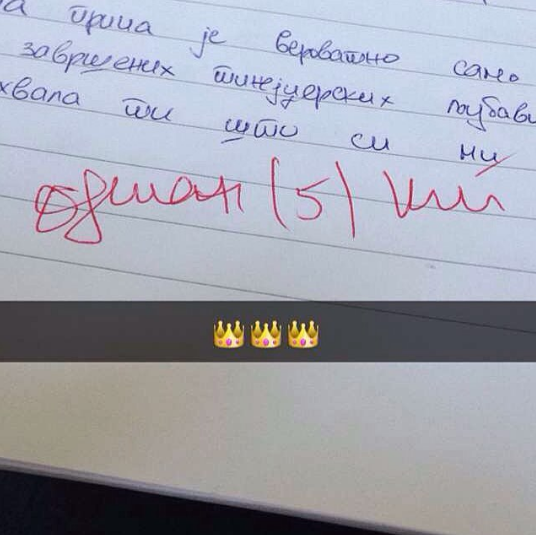 а прича је вероватно само
завршених тинејџерских љубави
хвала ти што си ми
одличан (5)